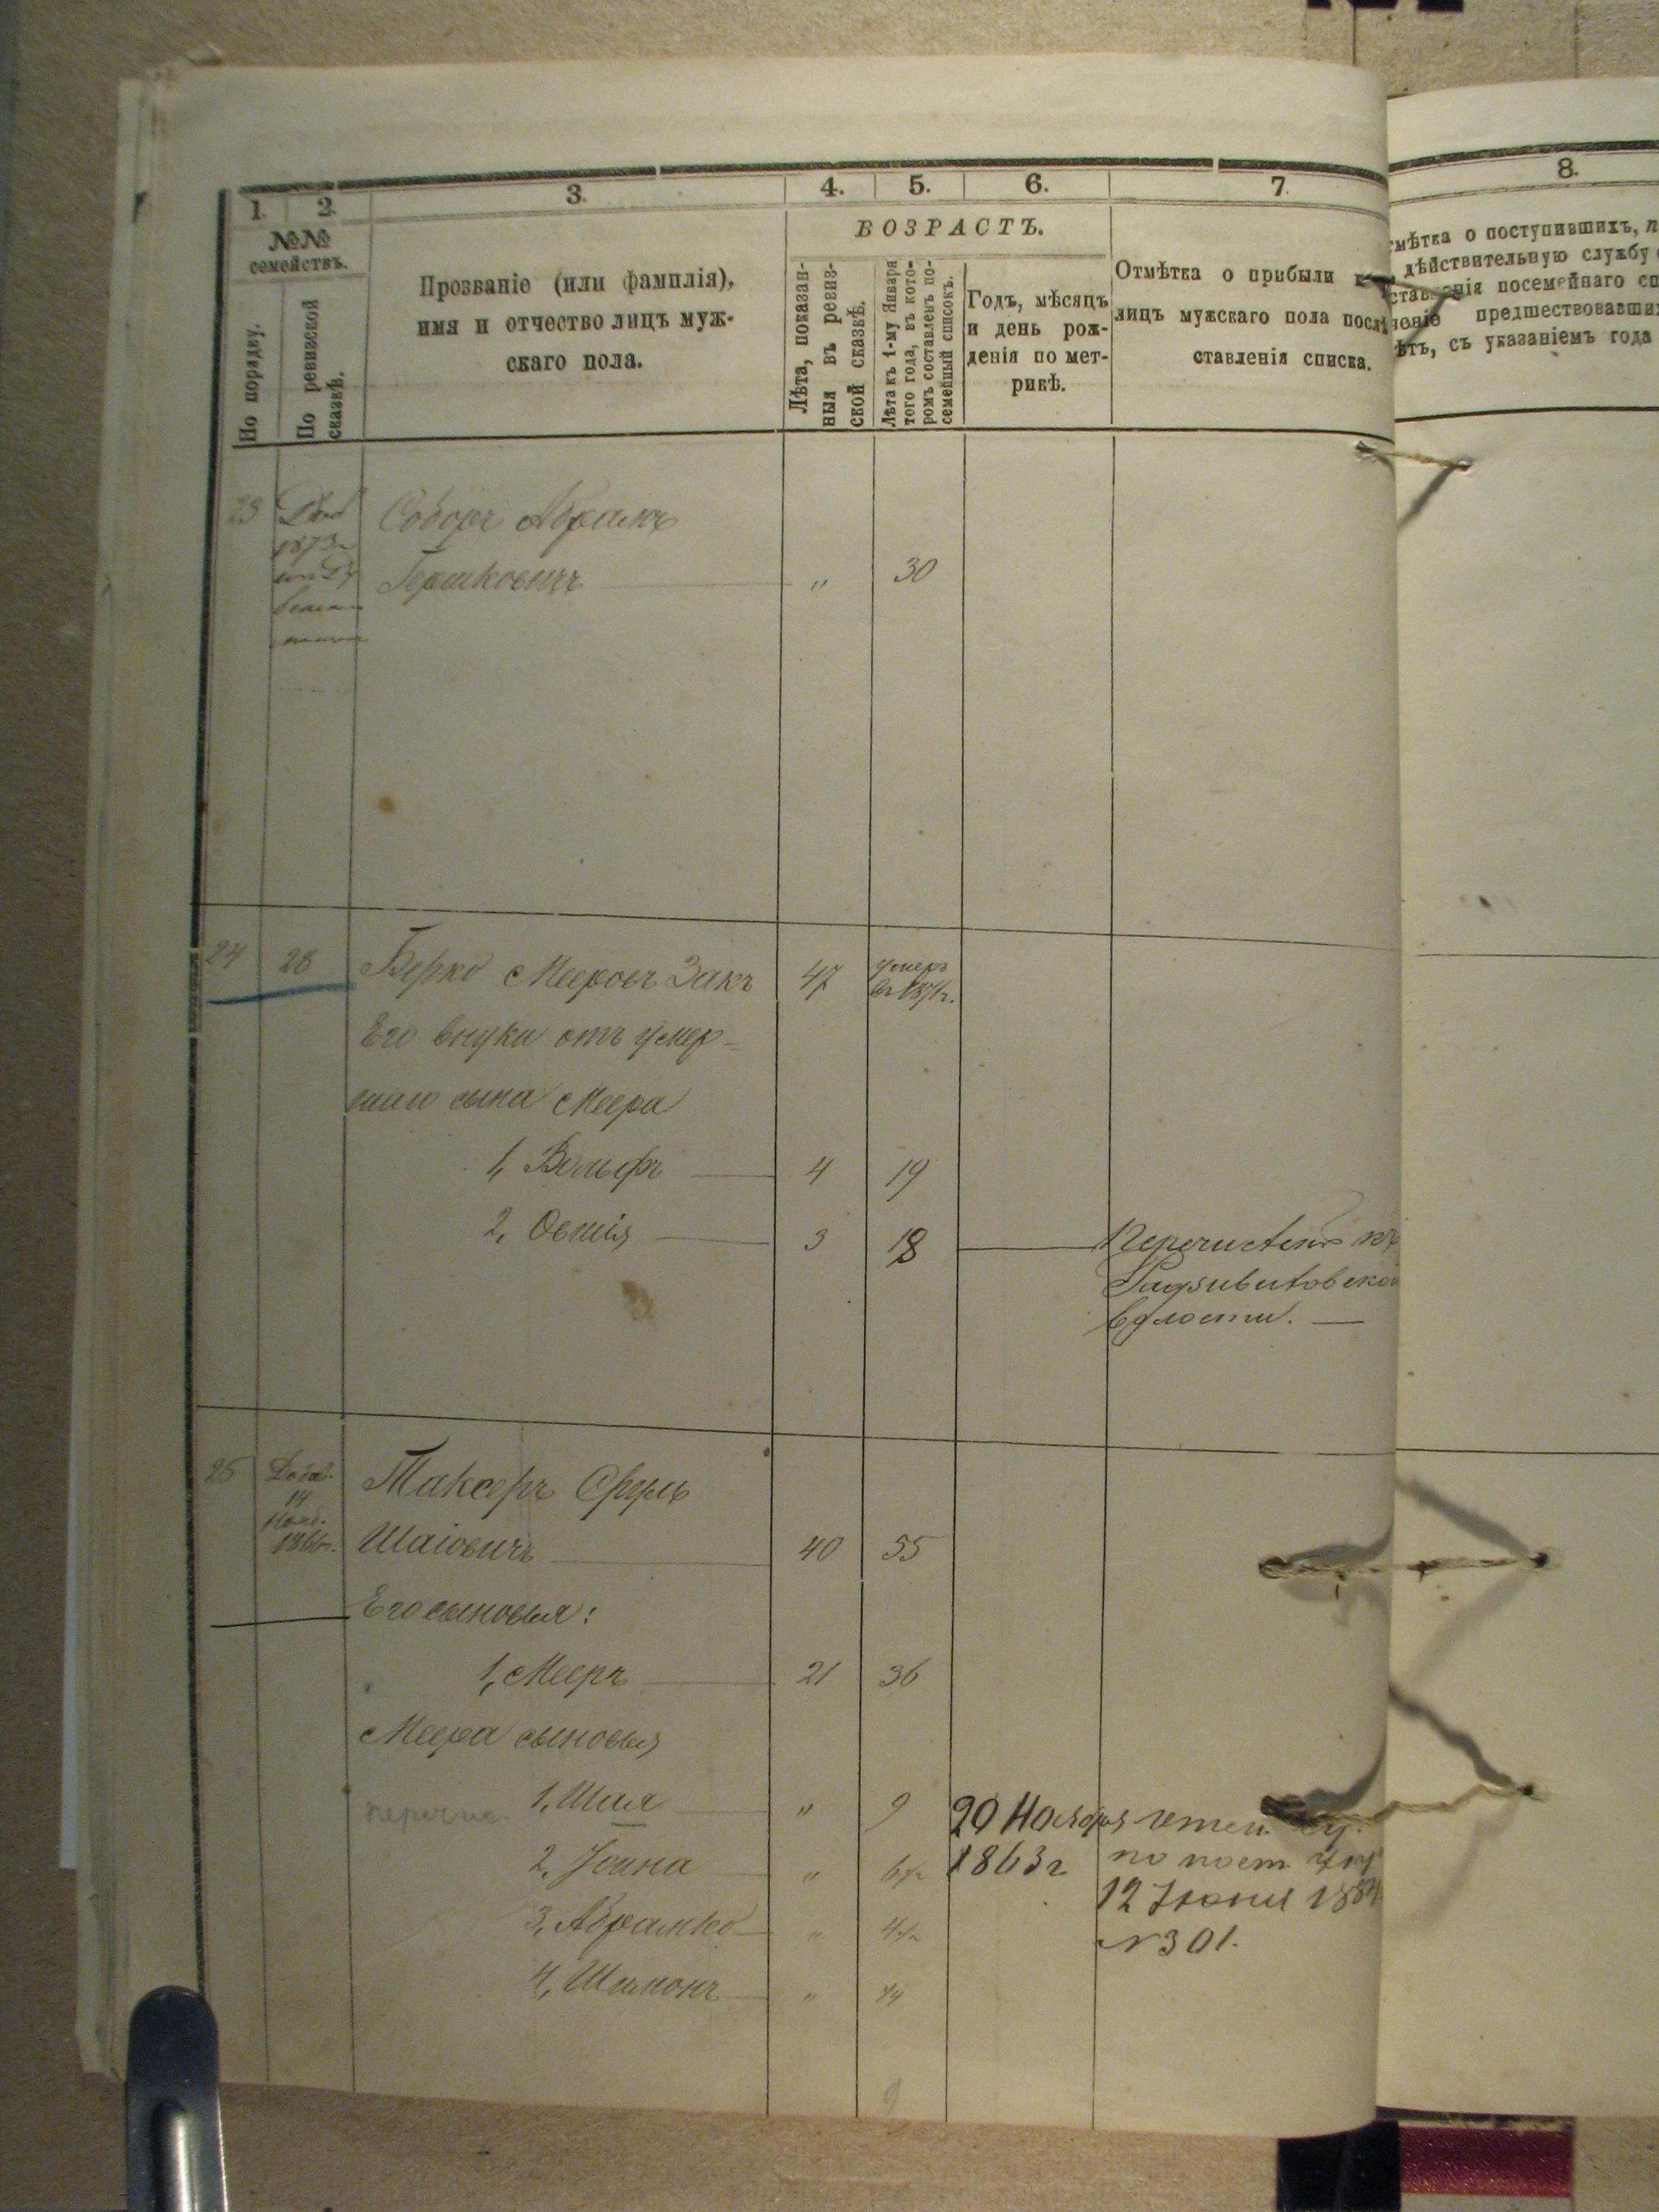 1. 2. 3. 4. 5. 6. 7. 8.
№№ семействъ.
По порядку.
По ревизской сказкѣ.
Прозваніе (или фамилія),
имя и отчество лицъ муж-
скаго пола.
ВОЗРАСТЪ.
Лѣта, показан-
ныя въ ревиз-
ской сказкѣ.
Лѣта къ 1-му Января
того года, въ кото-
ромъ составленъ по-
семейный списокъ.
Годъ, мѣсяцъ
и день рож-
денія по мет-
рикѣ.
Отмѣтка о прибыли
лицъ мужскаго пола посл
ставленія списка.
мѣтка о поступившихъ,
дѣйствительную службу
посемейнаго сп
предшествовавши
ѣтъ, съ указаніемъ года
23 Соборъ Абрамъ
1873
Гершковичъ " 30
24 28 Берко Мееровъ Закъ 47 умеръ
въ 1871г.
Его внуки отъ умер-
шаго сына Меера
1, Вольфъ 4 19
2, Овшія 3 18 Перечисленъ къ
Радзивиловской
волости.
25 Добав. Таксеръ Сруль
14
1866г. Шаіовичъ 40 55
Его сыновья:
1, Мееръ 21 36
Меера сыновья
перечис. 1, Шая " 9 20 Ноября
2, Іойна " 6½ 1863г по
12 Іюня 188
3, Абрамко " 4½
№301.
4, Шимонъ " ¼
9